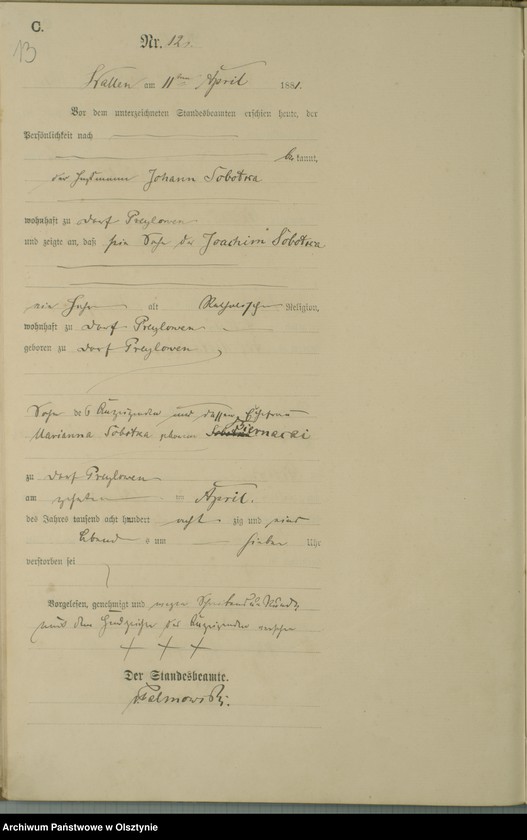 C.
13
Nr. 12.
Wallen am 11ten April 1881.
Vor dem unterzeichneten Standesbeamten erschien heute, der
Persönlichkeit nach
bekannt,
der Johann Sobotka
wohnhaft zu Dorf Preylowen
und zeigte an, daß sein Sohn der Joachim Sobotka
ein Jahr alt Katholischer Religion,
wohnhaft zu Dorf Preylowen
geboren zu Dorf Preylowen,
Sohn des Anzeigenden und dessen Ehefrau
Marianna Sobotka geborene Biernacki
zu Dorf Preylowen
am zehnten ten April.
des Jahres tausend acht hundert acht zig und eins
Abends um sieben Uhr
verstorben sei
Vorgelesen, genehmigt und wegen
mit dem Handzeichen des Anzeigenden versehen
+ + +
Der Standesbeamte.
Palmowski.
Archiwum Państwowe w Olsztynie